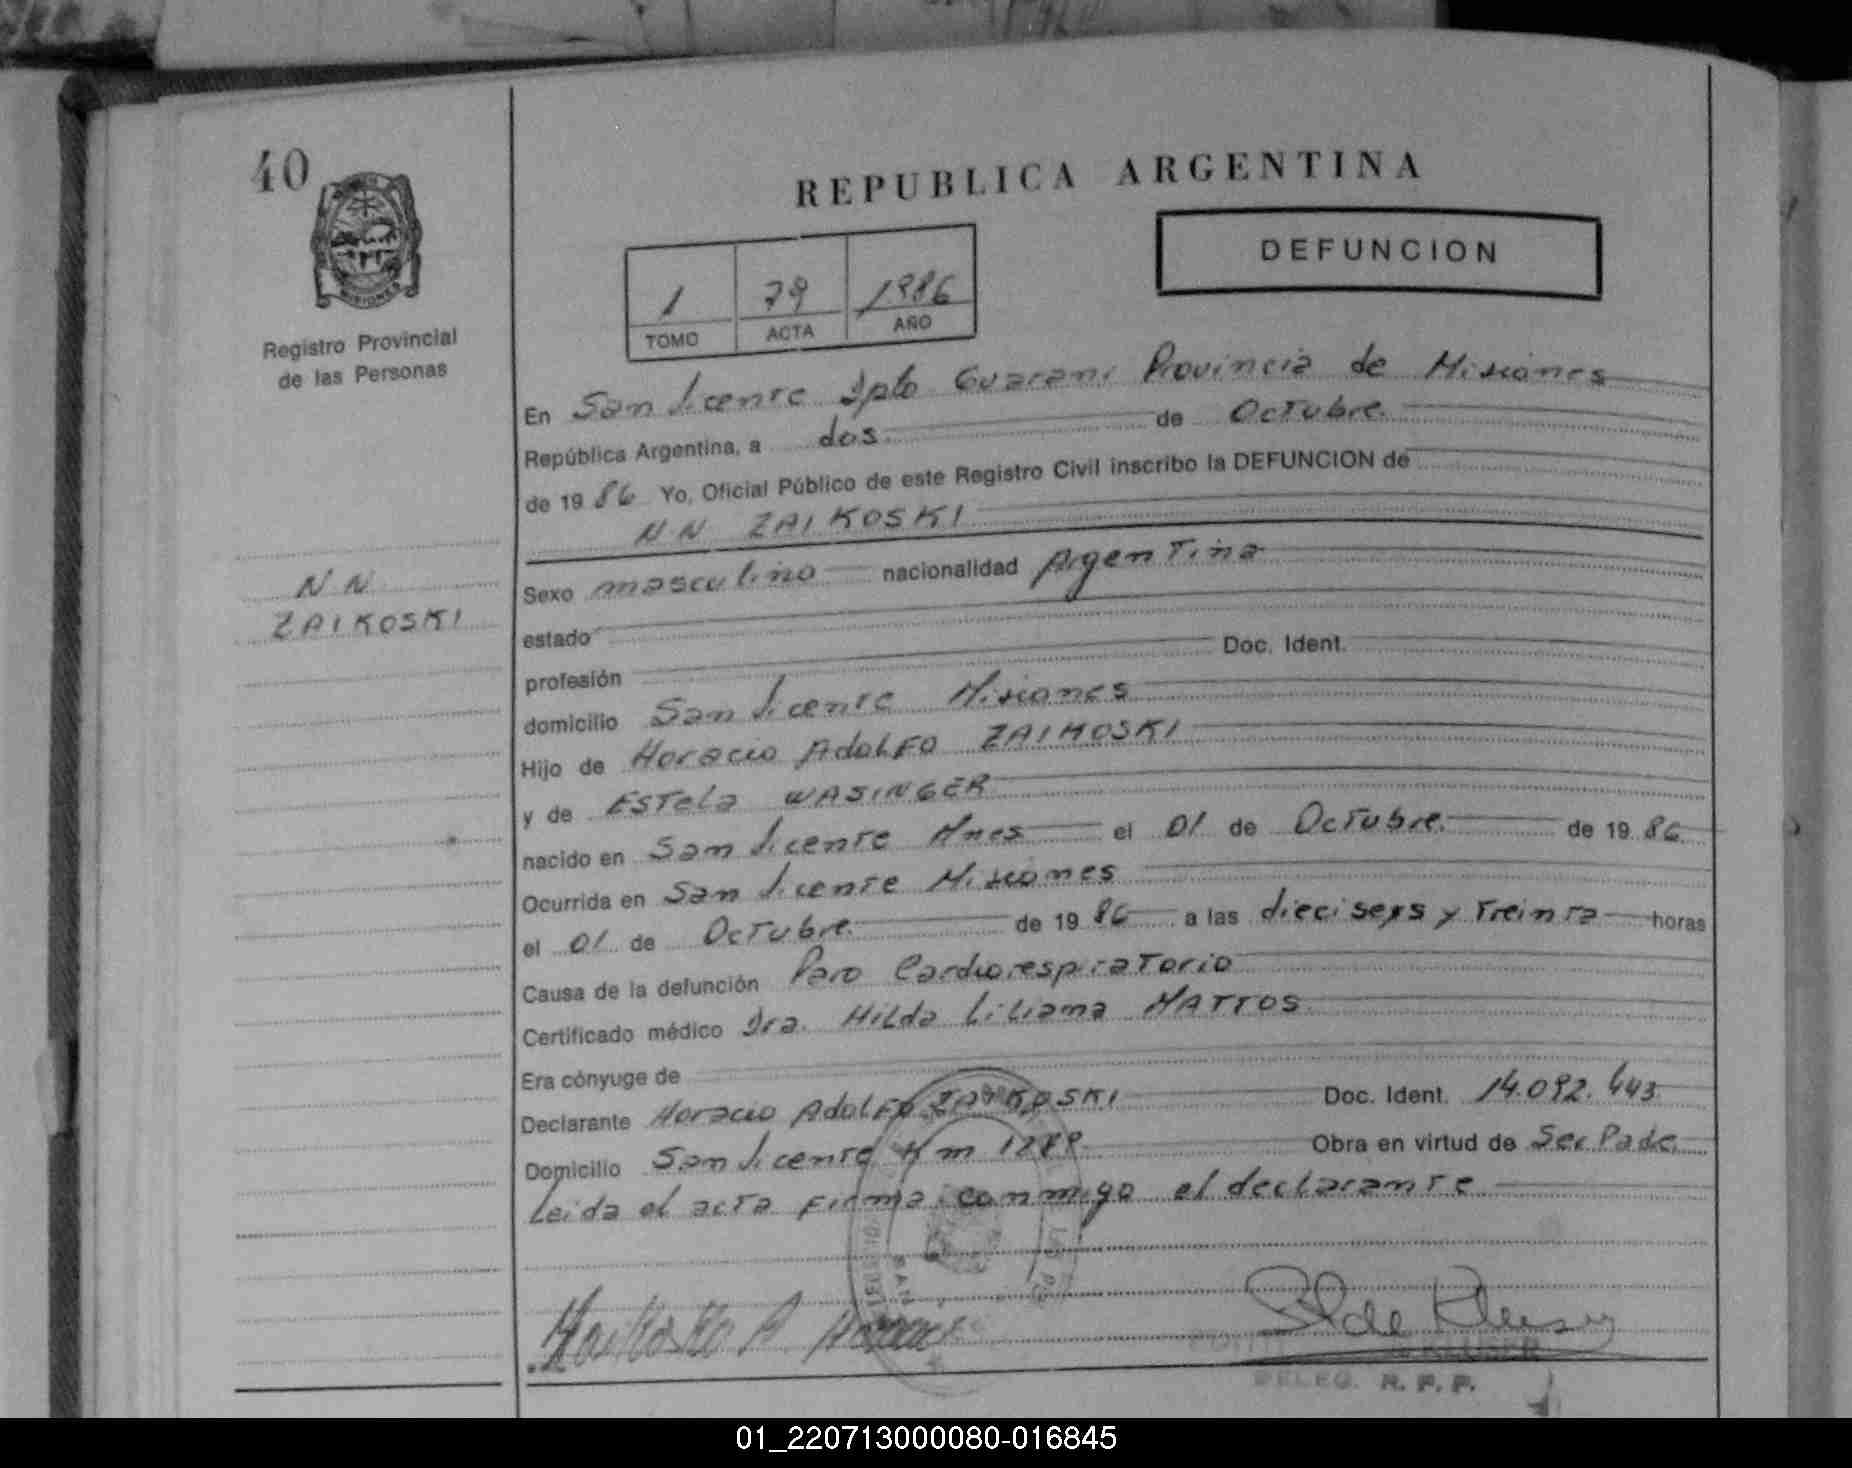 40
MISIONES
Registro Provincial
de las Personas
REPUBLICA ARGENTINA
DEFUNCION
1 79 1986
TOMO ACTA AÑO
En San Vicente Dpto Guarani Provincia de Misiones
República Argentina, a dos de Octubre
de 1986 Yo, Oficial Público de este Registro Civil inscribo la DEFUNCION de
N N ZAIKOSKI
N N
ZAIKOSKI
Sexo masculino nacionalidad Argentina
estado
profesión Doc. Ident.
domicilio San Vicente Misiones
Hijo de Horacio Adolfo ZAIKOSKI
y de Estela WASINGER
nacido en San Vicente Mnes el 01 de Octubre de 1986
Ocurrida en San Vicente Misiones
el 01 de Octubre de 1986 a las dieciseis y Treinta horas
Causa de la defunción Paro Cardiorespiratorio
Certificado médico Dra. Hilda Liliana MATTOS
Era cónyuge de
Declarante Horacio Adolfo ZAIKOSKI Doc. Ident. 14.092.443
Domicilio San Vicente Km 1282 Obra en virtud de Ser Padre
Leida el acta firma conmigo el declarante
SAN
KLUSER
DELEG. R. P. P.
01_220713000080-016845